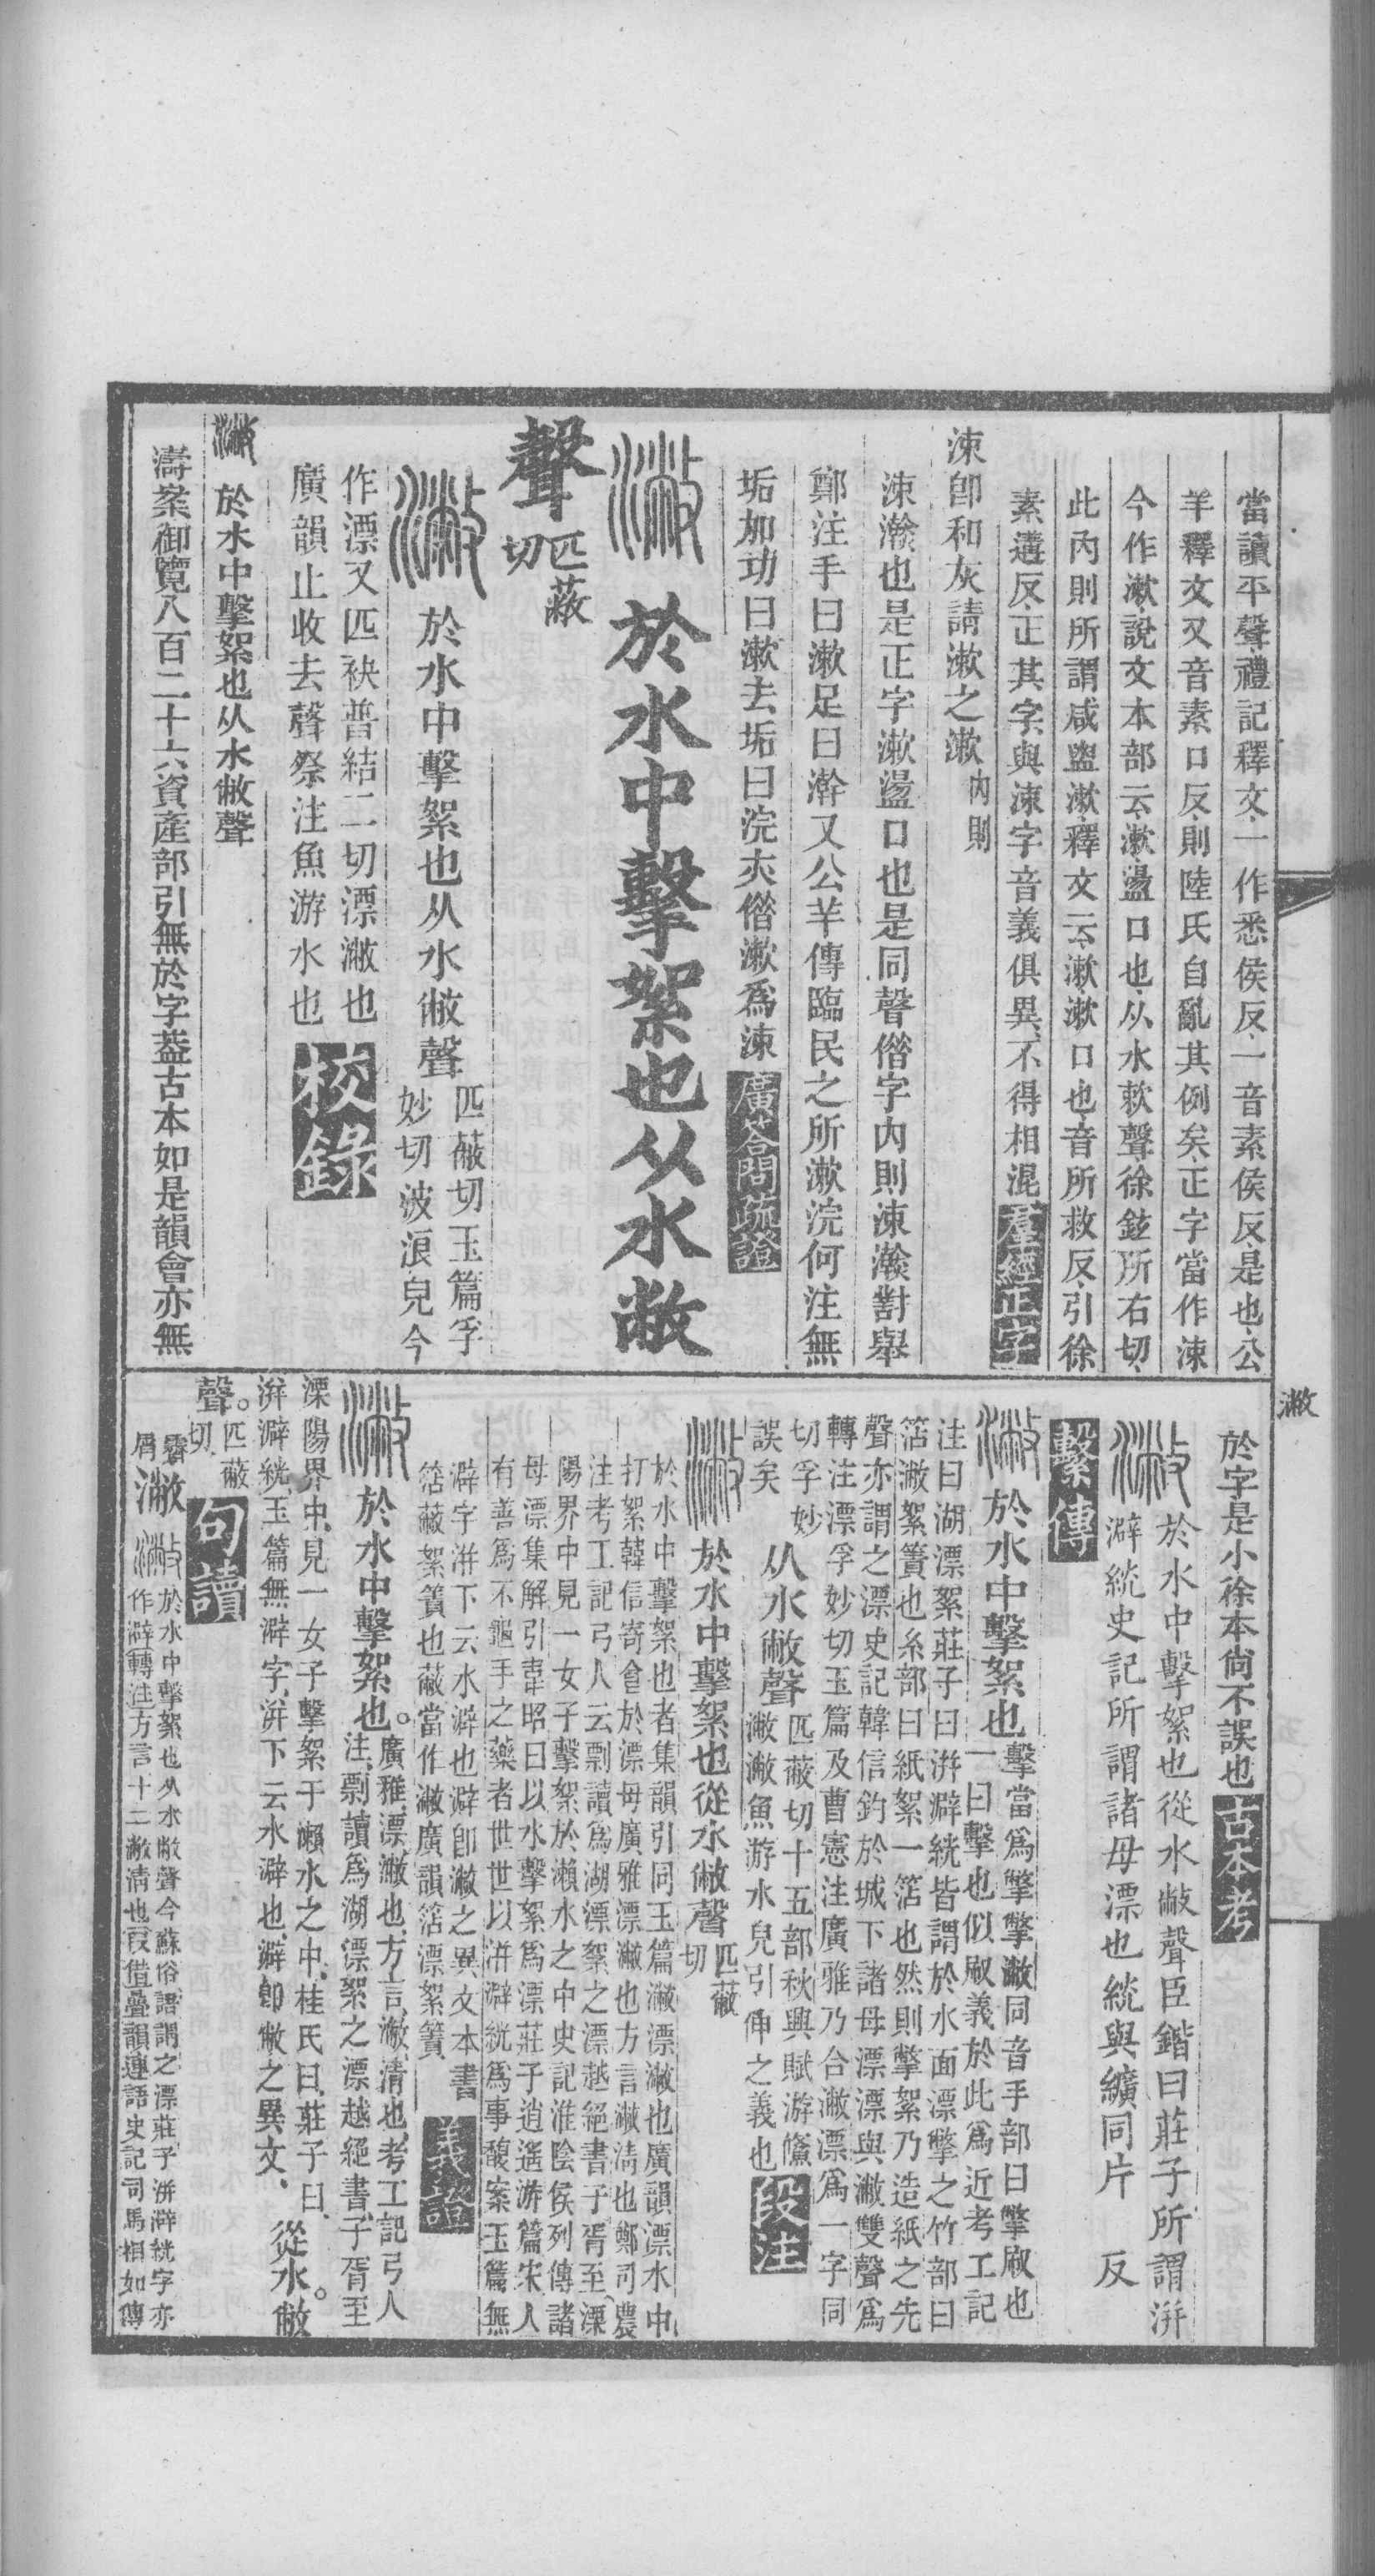 當讀平聲禮記釋文一作悉侯反一音素侯反是也公
羊釋文又音素口反則陸氏自亂其例矣正字當作涑
今作漱說文本部云漱盪口也从水欶聲徐鉉所右切
此內則所謂咸盥漱釋文云漱漱口也音所救反引徐
素遘反正其字與涑字音義俱異不得相混羣經正字
涑卽和灰請漱之漱內則
涑澣也是正字漱盪口也是同聲借字內則涑澣對舉
鄭注手曰漱足曰澣又公羊傳臨民之所漱浣何注無
垢加功曰漱去垢曰浣夾僣漱爲涑廣答問疏證
潎於水中擊絮也从水敝
聲匹蔽切
潎於水中擊絮也从水敝聲匹蔽切玉篇孚
妙切波浪皃今
作漂又匹袂普結二切漂潎也
廣韻止收去聲祭注魚游水也校錄
潎於水中擊絮也从水敝聲
濤案御覽八百二十六資產部引無於字葢古本如是韻會亦無
潎
於字是小徐本尙不誤也古本考
潎於水中擊絮也從水敝聲臣鍇曰莊子所謂洴
澼絖史記所謂諸母漂也絖與纊同片 反
繫傳
潎於水中擊絮也擊當爲擎擎潎同音手部曰擎㡿也
一曰擊也似㡿義於此爲近考工記
注曰湖漂絮莊子曰洴澼絖皆謂於水面漂擎之竹部曰
箈潎絮簀也糸部曰紙絮一箈也然則擎絮乃造紙之先
聲亦謂之漂史記韓信釣於城下諸母漂漂與潎雙聲爲
轉注漂孚妙切玉篇及曹憲注廣雅乃合潎漂爲一字同
切孚妙
誤矣从水敝聲匹蔽切十五部秋興賦游鯈
潎潎魚游水皃引伸之義也段注
潎於水中擊絮也從水敝聲匹蔽切
於水中擊絮也者集韻引同玉篇潎漂潎也廣韻漂水中
打絮韓信寄食於漂母廣雅漂潎也方言潎淸也鄭司農
注考工記弓人云剽讀爲湖漂絮之漂越絕書子胥至溧
陽界中見一女子擊絮於瀨水之中史記淮陰侯列傳諸
母漂集解引韋昭曰以水擊絮爲漂莊子逍遙游篇宋人
有善爲不龜手之藥者世世以洴澼絖爲事馥案玉篇無
澼字洴下云水澼也澼卽潎之異文本書
箈蔽絮簀也蔽當作潎廣韻箈漂絮簀義證
潎於水中擊絮也。廣雅、漂潎也、方言、潎淸也、考工記弓人
注、剽讀爲湖漂絮之漂、越絕書、子胥至
溧陽界中、見一女子擊絮于瀨水之中、桂氏曰、莊子曰、
洴澼絖、玉篇無澼字、洴下云水澼也、澼卽潎之異文、從水敝。
聲。匹蔽切句讀
霽屑潎潎於水中擊絮也从水敝聲今蘇俗語謂之漂莊子洴澼絖字亦
作澼轉注方言十二潎淸也叚借疊韻連語史記司馬相如傳